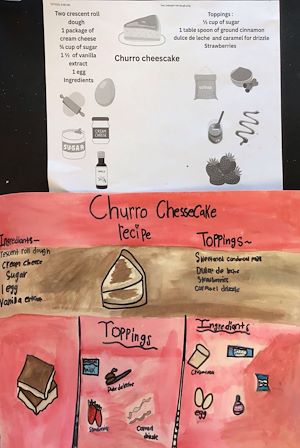 Two crescent roll
dough
1 package of
cream cheese
¾ cup of sugar
1 ½ of vanilla
extract
1 egg
Ingredients
Toppings :
½ cup of sugar
1 table spoon of ground cinnamon
dulce de leche and caramel for drizzle
Strawberries
Churro cheescake
SUGAR
CREAM
CHEESE
Churro ChesseCake
recipe
Ingredients~
rescent roll dough
Cream cheese
Sugar
1 egg
Vanilla extract
Toppings~
Sweetened condensed milk
Dulce de leche
Strawberries
Caramel drizzle
Toppings
Dulce de leche
Strawberries
Caramel
drizzle
Ingredients
Cinnamon
egg